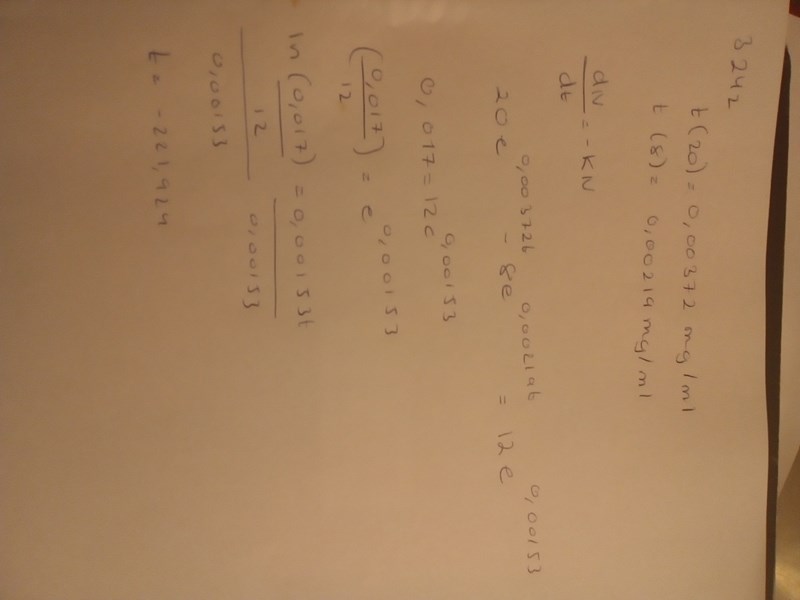 3242
t(20) = 0,00372 mg/ml
t(8) = 0,00219 mg/ml
dN/dt = -KN
20e^0,00372t - 8e^0,00219t = 12e^0,00153
0,017 = 12e^0,00153
(0,017/12) = e^0,00153
ln(0,017/12)/0,00153 = 0,00153t/0,00153
t = -221,424